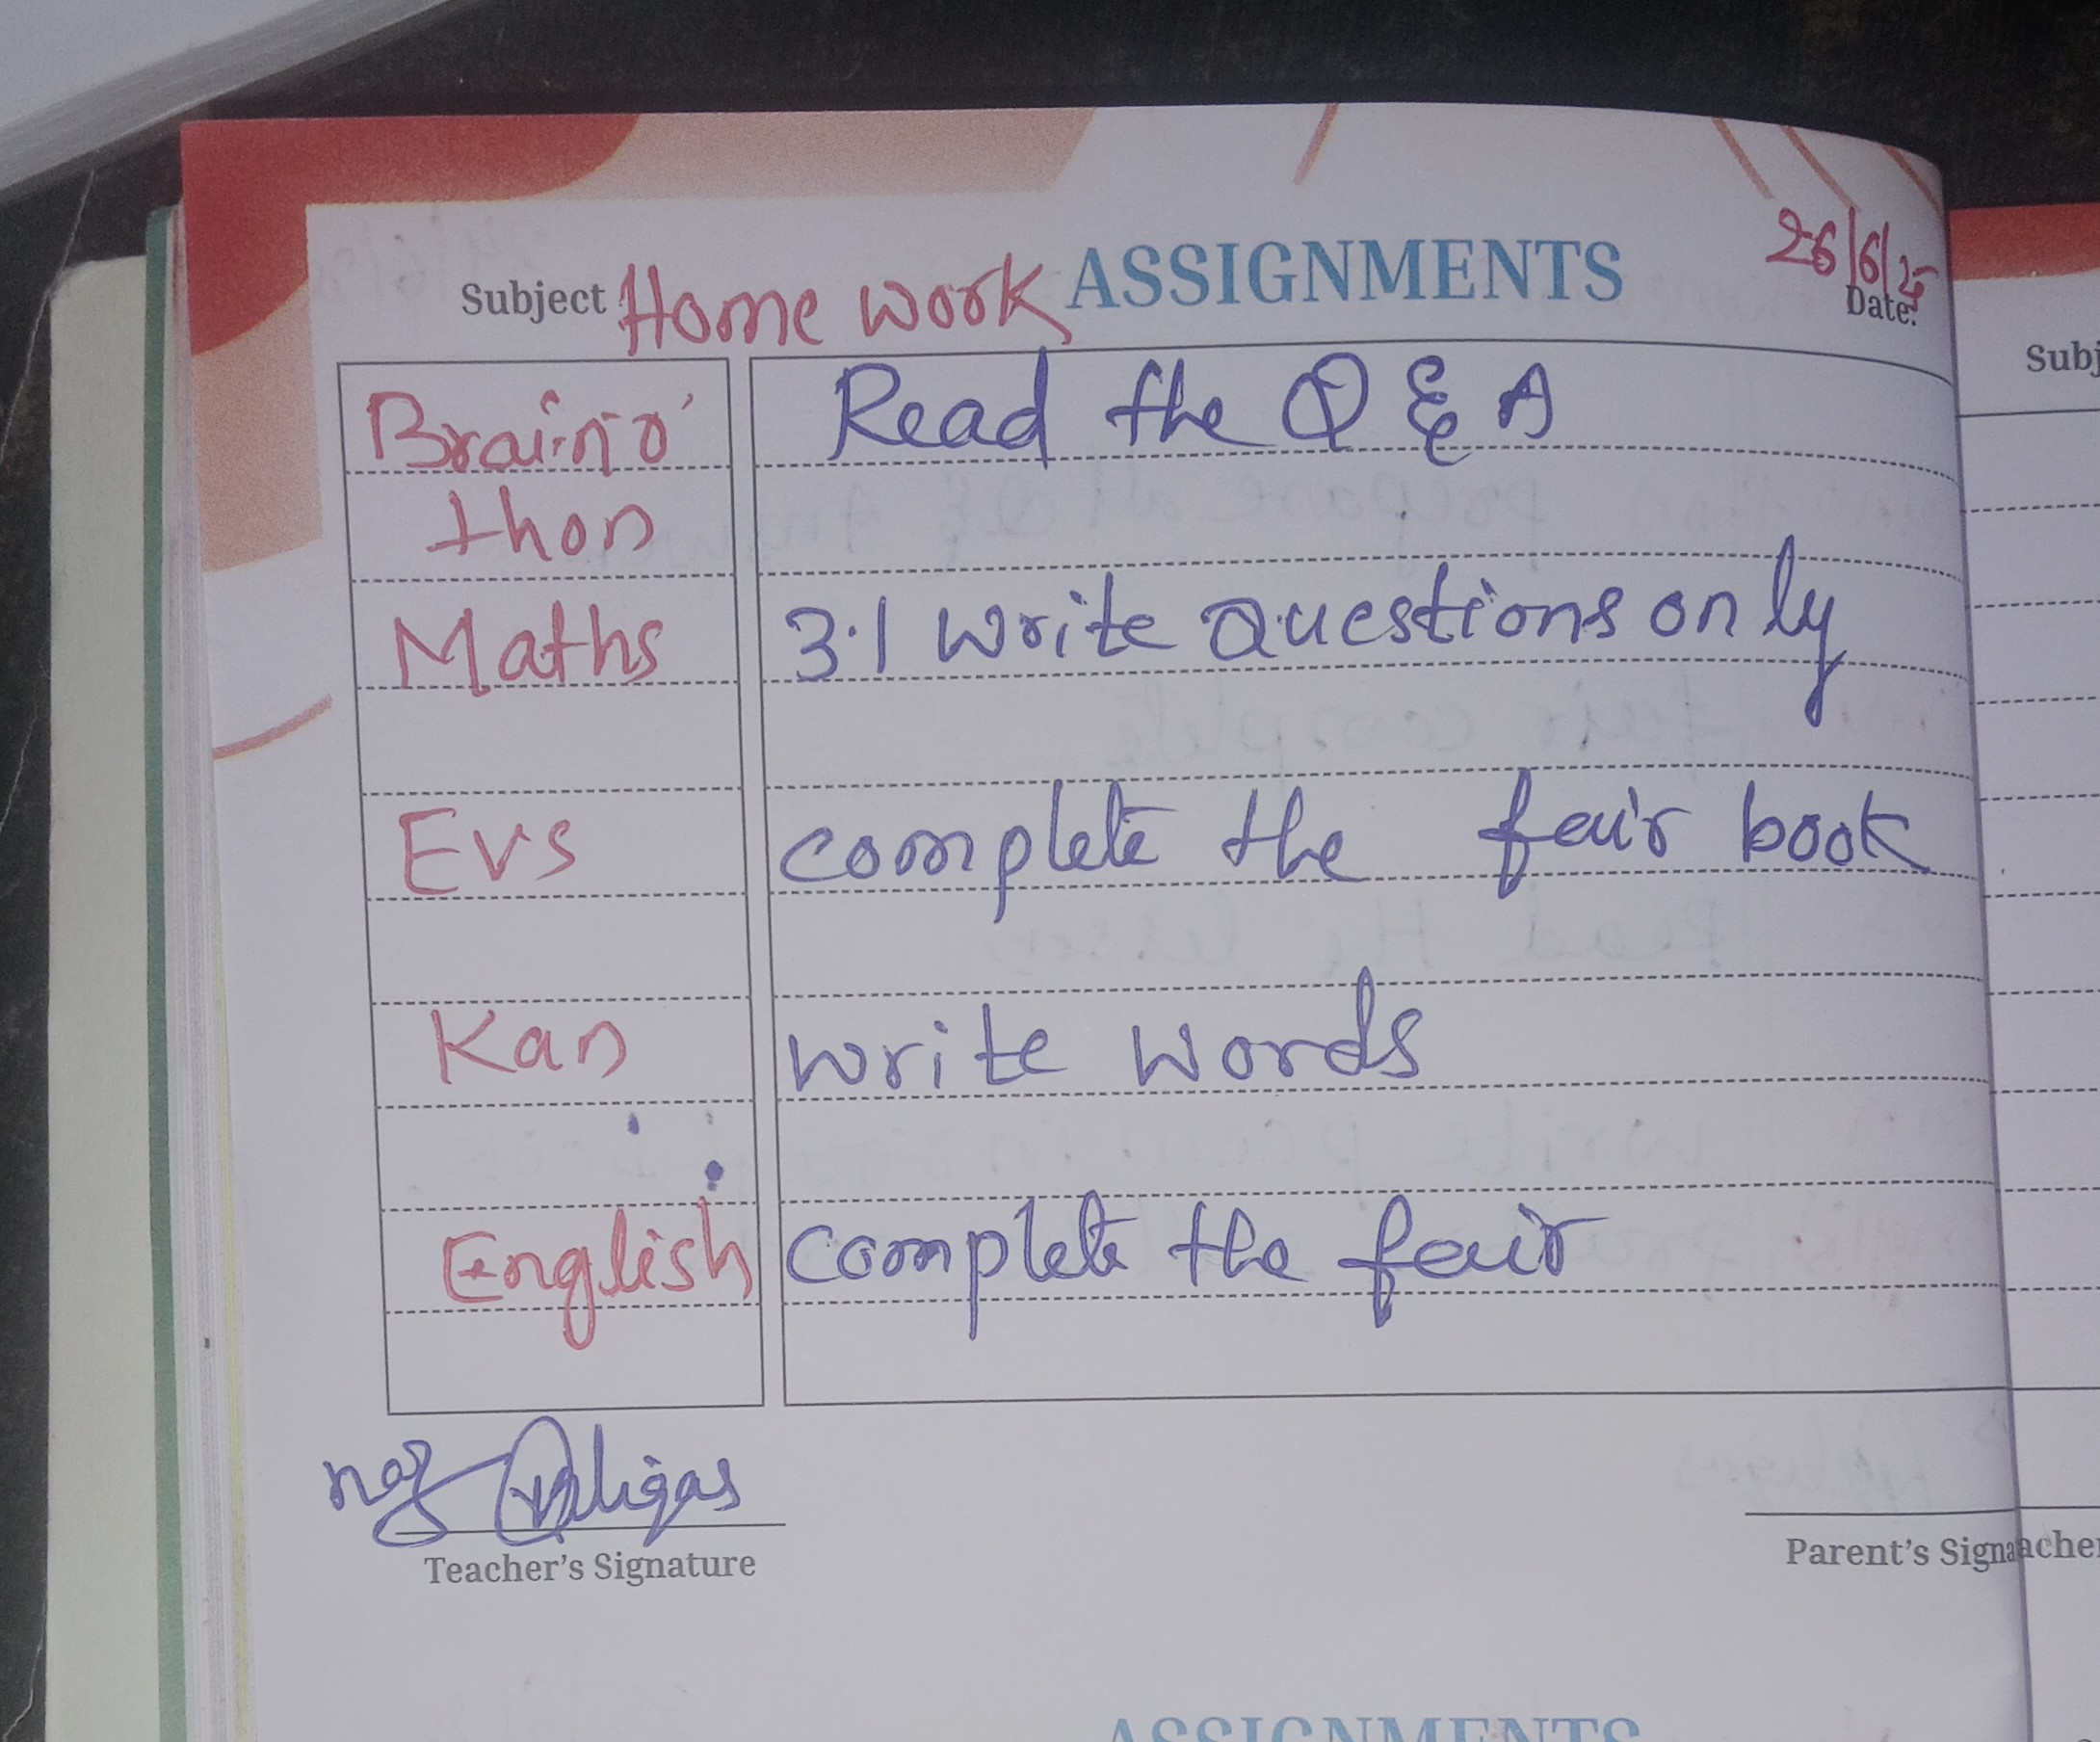 Subject Home work ASSIGNMENTS 26/6/25
Date:
Subj
Braino' Read the Q & A
thon
Maths 3.1 write questions only
Evs complete the fair book
Kan write words
English complete the fair
Teacher's Signature
Parent's Signa
ASSIGNMENTS